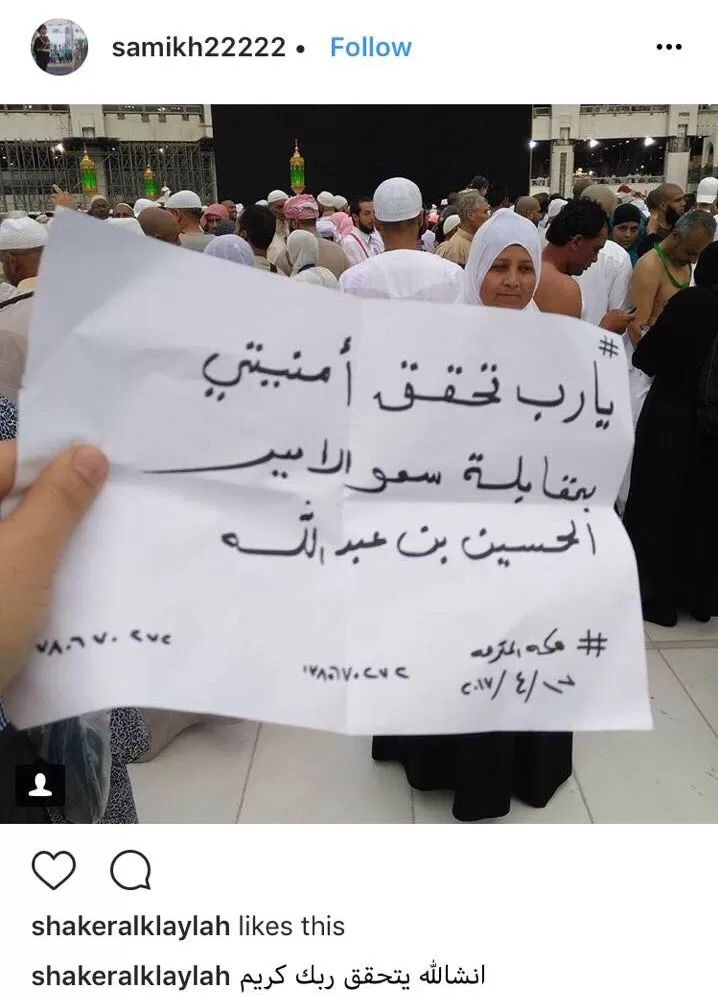 samikh22222 • Follow
#
يارب تحقق أمنيتي
بمقابلة سمو الامير
الحسين بن عبدالله
# مكه المكرمه
٠٧٨٠٦٧٠٢٧٢
shakeralklaylah likes this
shakeralklaylah انشالله يتحقق ربك كريم